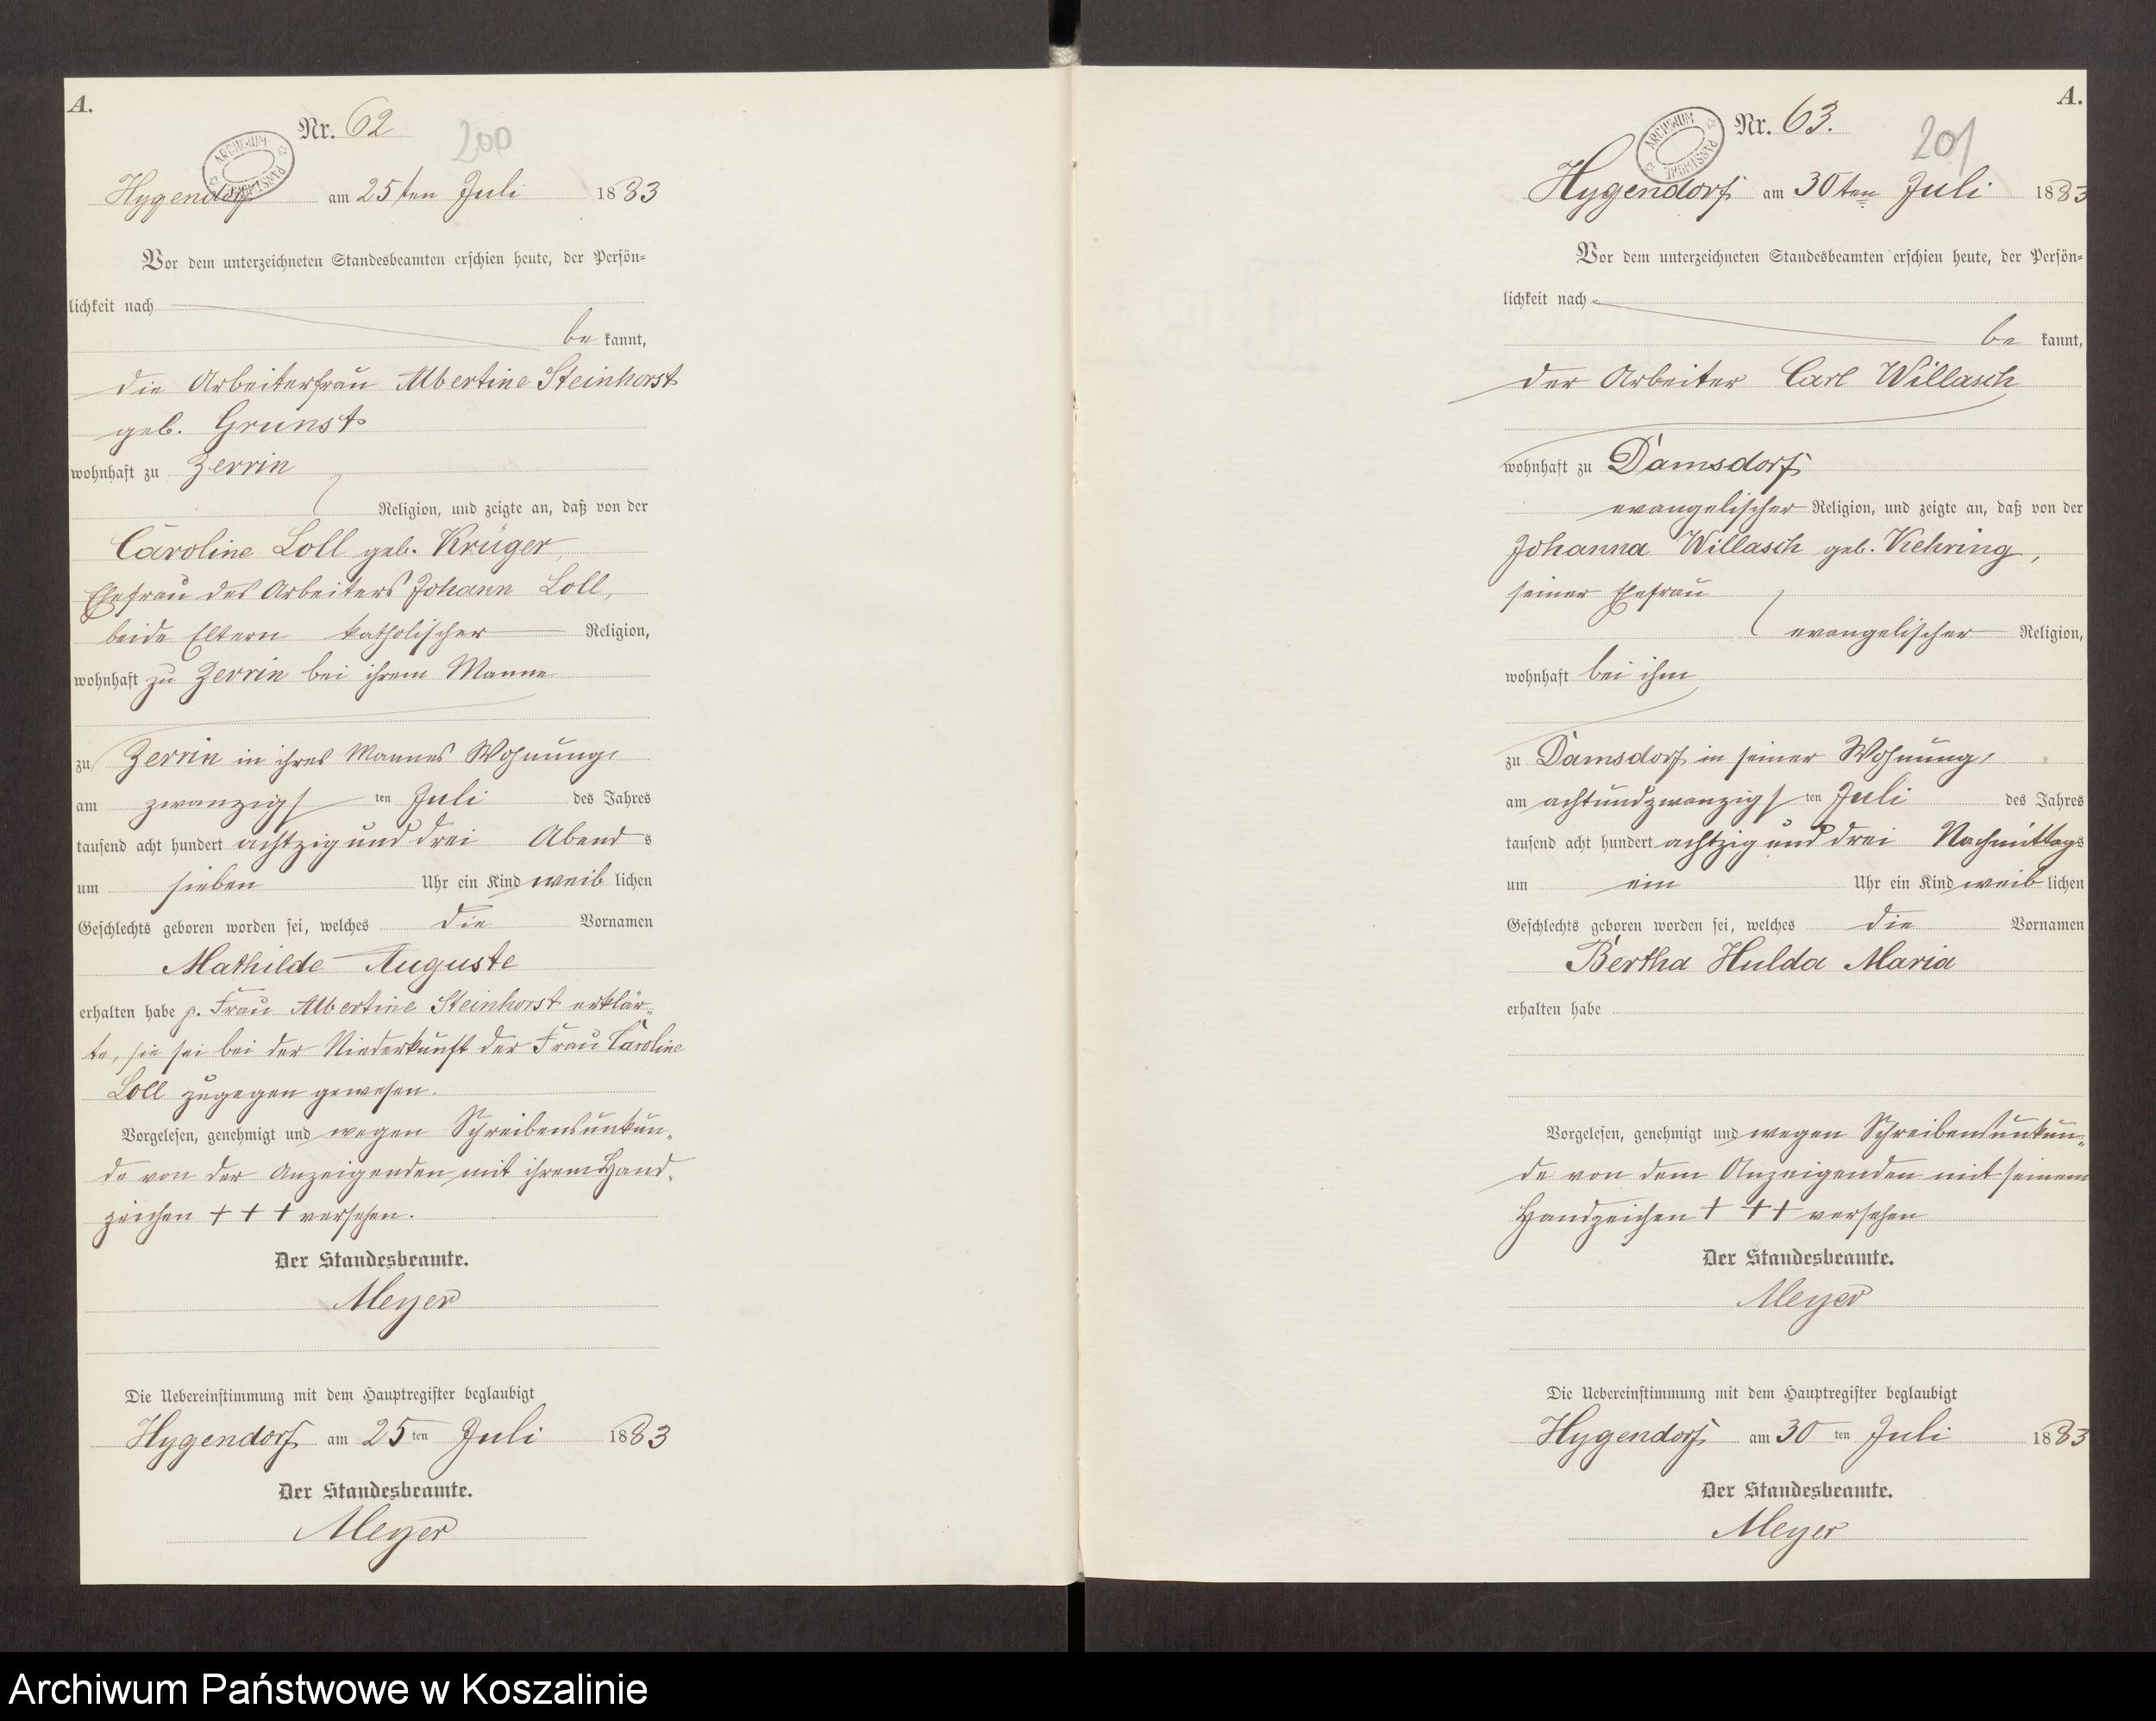 A.
Nr. 62
200
ARCHIWUM PAŃSTWOWE
Hygendorf am 25ten Juli 1883
Vor dem unterzeichneten Standesbeamten erschien heute, der Persön-
lichkeit nach
be kannt,
die Arbeiterfrau Albertine Steinhorst
geb. Grunst
wohnhaft zu Zerrin
Religion, und zeigte an, daß von der
Caroline Loll geb. Krüger,
Ehefrau des Arbeiters Johann Loll,
beide Eltern katholischer Religion,
wohnhaft zu Zerrin bei ihrem Manne
zu Zerrin in ihres Mannes Wohnung,
am zwanzigsten Juli des Jahres
tausend acht hundert achtzig und drei Abend s
um sieben Uhr ein Kind weib lichen
Geschlechts geboren worden sei, welches die Vornamen
Mathilde Auguste
erhalten habe p. Frau Albertine Steinhorst erklär-
te, sie sei bei der Niederkunft der Frau Caroline
Loll zugegen gewesen.
Vorgelesen, genehmigt und wegen Schreibensunkun-
de von der Anzeigenden mit ihrem Hand-
zeichen + + + versehen.
Der Standesbeamte.
Meyer
Die Uebereinstimmung mit dem Hauptregister beglaubigt
Hygendorf am 25ten Juli 1883
Der Standesbeamte.
Meyer
A.
Nr. 63.
201
ARCHIWUM PAŃSTWOWE
Hygendorf am 30ten Juli 1883
Vor dem unterzeichneten Standesbeamten erschien heute, der Persön-
lichkeit nach
be kannt,
der Arbeiter Carl Willasch
wohnhaft zu Damsdorf
evangelischer Religion, und zeigte an, daß von der
Johanna Willasch geb. Kehring,
seiner Ehefrau
evangelischer Religion,
wohnhaft bei ihm
zu Damsdorf in seiner Wohnung,
am achtundzwanzigsten Juli des Jahres
tausend acht hundert achtzig und drei Nachmittags
um ein Uhr ein Kind weib lichen
Geschlechts geboren worden sei, welches die Vornamen
Bertha Hulda Maria
erhalten habe
Vorgelesen, genehmigt und wegen Schreibensunkun-
de von dem Anzeigenden mit seinem
Handzeichen + + + versehen
Der Standesbeamte.
Meyer
Die Uebereinstimmung mit dem Hauptregister beglaubigt
Hygendorf am 30ten Juli 1883
Der Standesbeamte.
Meyer
Archiwum Państwowe w Koszalinie